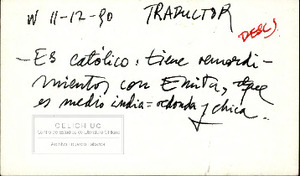 W 11-12-90 TRADUCTOR
DESC)
— Es católico: tiene remordi-
mientos con Emita, que
es medio india = redonda y chica.
CELICH UC
Centro de Estudios de Literatura Chilena